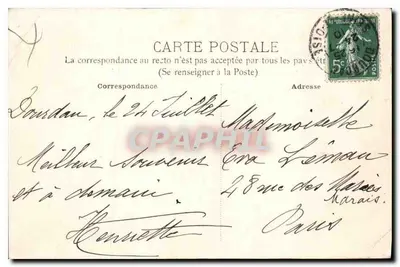 CARTE POSTALE
La correspondance au recto n'est pas acceptée par tous les pays étr
(Se renseigner à la Poste)
Correspondance
Adresse
Dourdan, le 24 Juillet
Meilleur souvenir
et à demain
Henriette
Mademoiselle
Eva Léman
48 rue des Marais
Marais
Paris
CPAPHIL
5